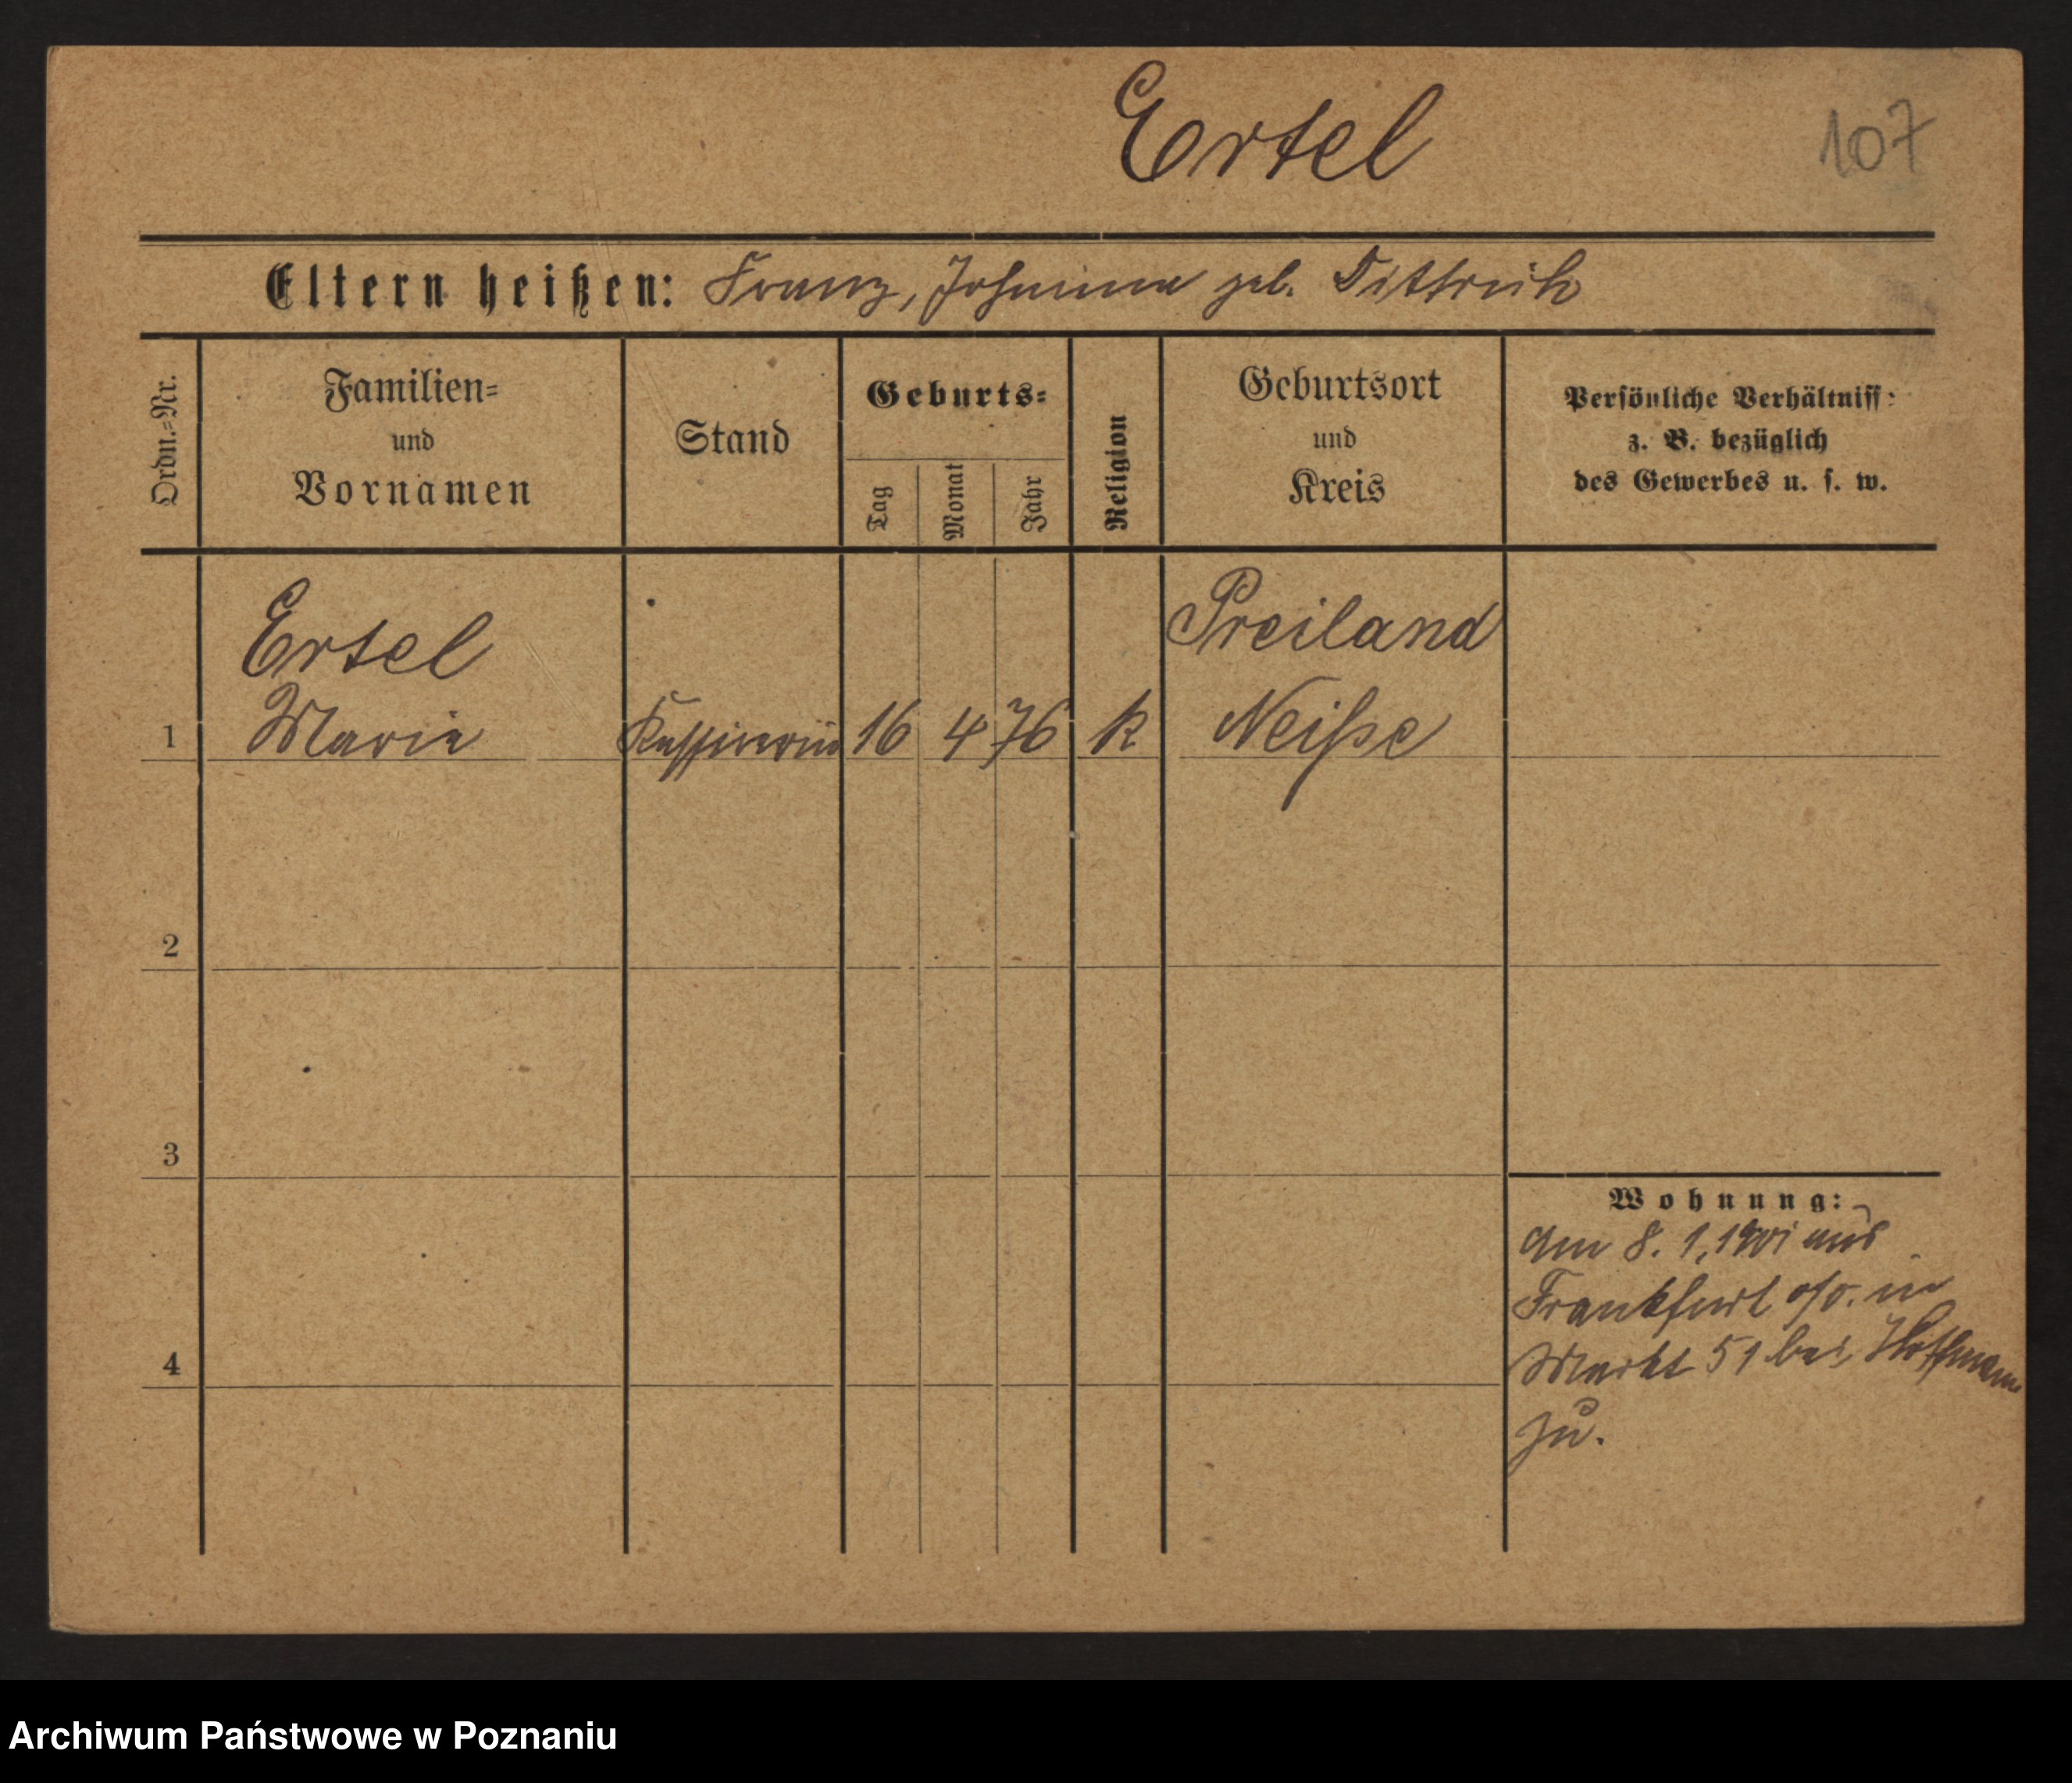 Ertel
107
Eltern heißen: Franz, Johanna geb. Dittrich
Ordn.-Nr.
Familien-
und
Vornamen
Stand
Geburts-
Tag
Monat
Jahr
Religion
Geburtsort
und
Kreis
Persönliche Verhältniss-
z. B. bezüglich
des Gewerbes u. s. w.
Ertel
Preiland
1 Marie Kassirerin 16 4 76 k Neiße
2
3
Wohnung:
Am 8. 1. 1901 aus
Frankfurt o/O. in
4 Markt 51 bei Hoffmann
zu.
Archiwum Państwowe w Poznaniu